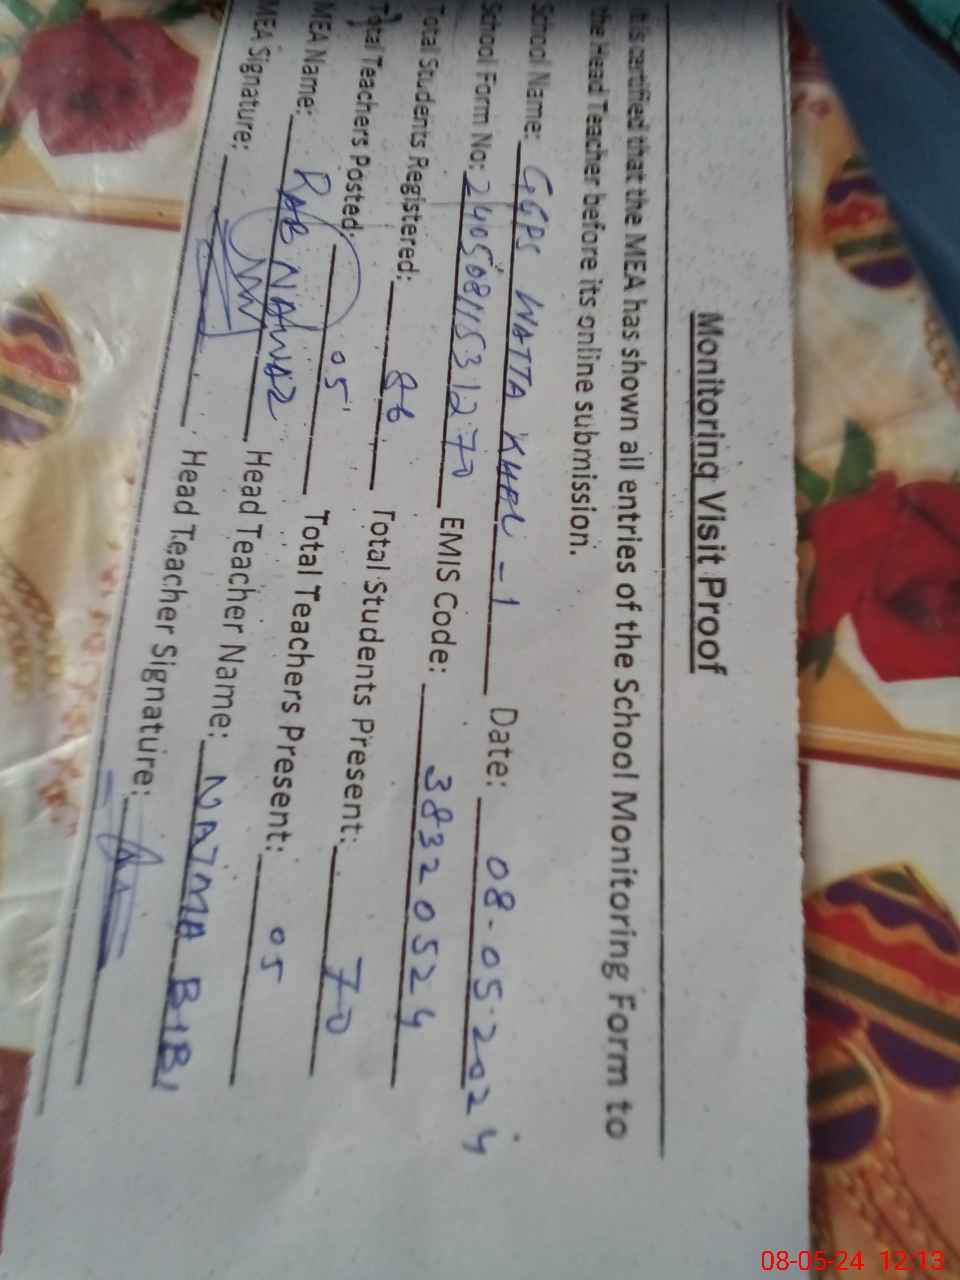 Monitoring Visit Proof
It is certified that the MEA has shown all entries of the School Monitoring Form to
the Head Teacher before its online submission.
School Name: GGPS WATTA KHEL - 1 Date: 08-05-2024
School Form No: 24050811531270 EMIS Code: 38320524
Total Students Registered: 86 Total Students Present: 70
Total Teachers Posted: 05 Total Teachers Present: 05
MEA Name: RAB NAWAZ Head Teacher Name: NAJMA BIBI
MEA Signature: Head Teacher Signature:
08-05-24 12:13